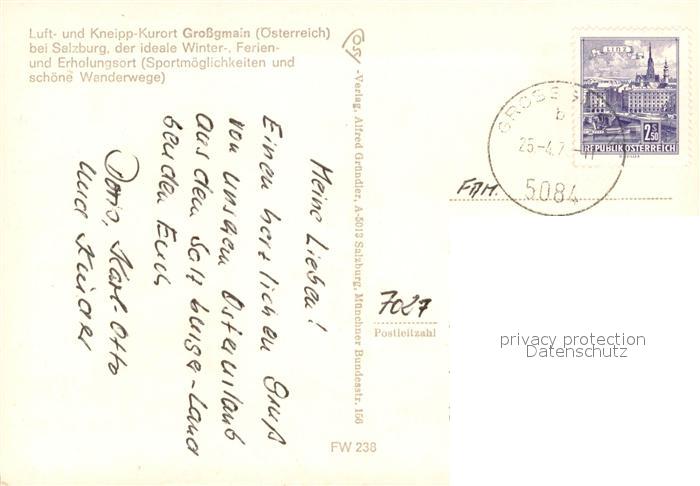 Luft- und Kneipp-Kurort Großgmain (Österreich)
bei Salzburg, der ideale Winter-, Ferien-
und Erholungsort (Sportmöglichkeiten und
schöne Wanderwege)
Meine Lieben!
Einen herzlichen Gruß
von unserem Osterurlaub
aus dem Salzburger-Land
senden Euch
Doris, Karl-Otto
und Kinder
-Verlag, Alfred Gründler, A-5013 Salzburg, Münchner Bundesstr. 156
FW 238
LINZ
2.S50
REPUBLIK ÖSTERREICH
b
25.-4.7
5084
FAM.
7027
Postleitzahl
privacy protection
Datenschutz